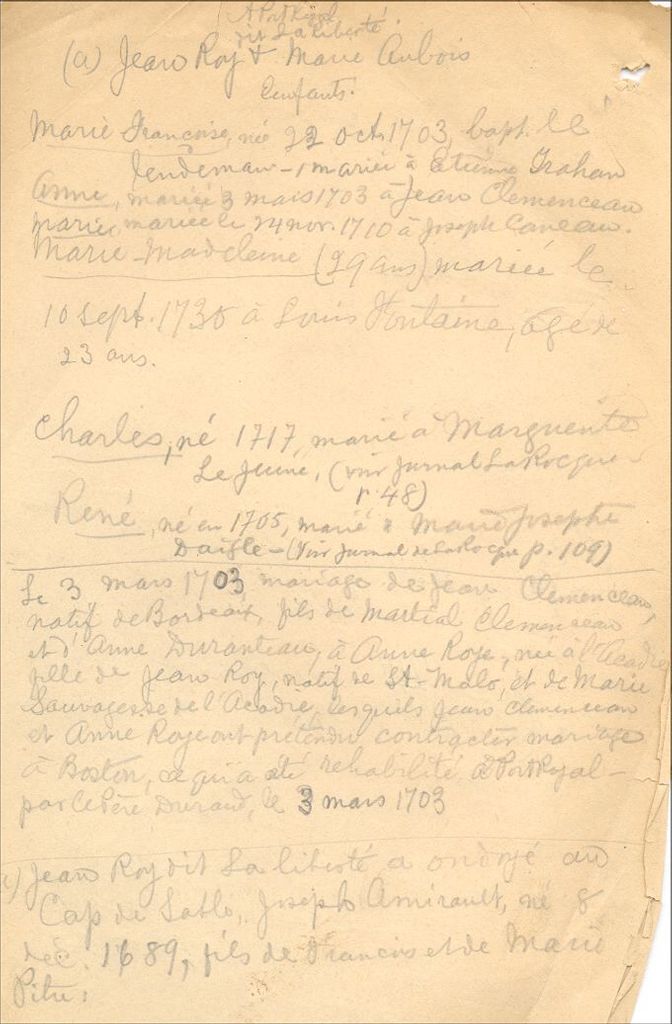 A Port Royal
dit La liberté.
(a) Jean Roy & Marie Aubois
Enfants.
Marie Francoise, née 22 oct. 1703, bapt. le
lendemain - mariée à Etienne Trahan
Anne, mariée 3 mars 1703 à Jean Clemenceau
Marie, mariée le 24 nov. 1710 à Joseph Caneau.
Marie-Madeleine (29 ans) mariée le
10 sept. 1735 à Louis Fontaine, âgé de
23 ans.
Charles, né 1717, marié à Marguerite
Le Jeune, (voir Jurnal LaRocque
p. 48)
René, né en 1705, marié à Marie Josephte
Daigle - (Voir Jurnal de LaRocque p. 109)
Le 3 mars 1703 mariage de Jean Clemenceau,
natif de Bordeaux, fils de Martial Clemenceau
et d'Anne Duranteau, à Anne Roye, née à l'Acadie
fille de Jean Roy, natif de St-Malo, et de Marie
Sauvagesse de l'Acadie, lesquels Jean Clemenceau
et Anne Roye ont prétendu contracter mariage
à Boston, ce qui a été rehabilité à Port Royal -
par le Père Durand, le 3 mars 1703
Jean Roy dit La liberté a ondoyé au
Cap de Sable, Joseph Amirault, né 8
dec. 1689, fils de Francois et de Marie
Pitre.